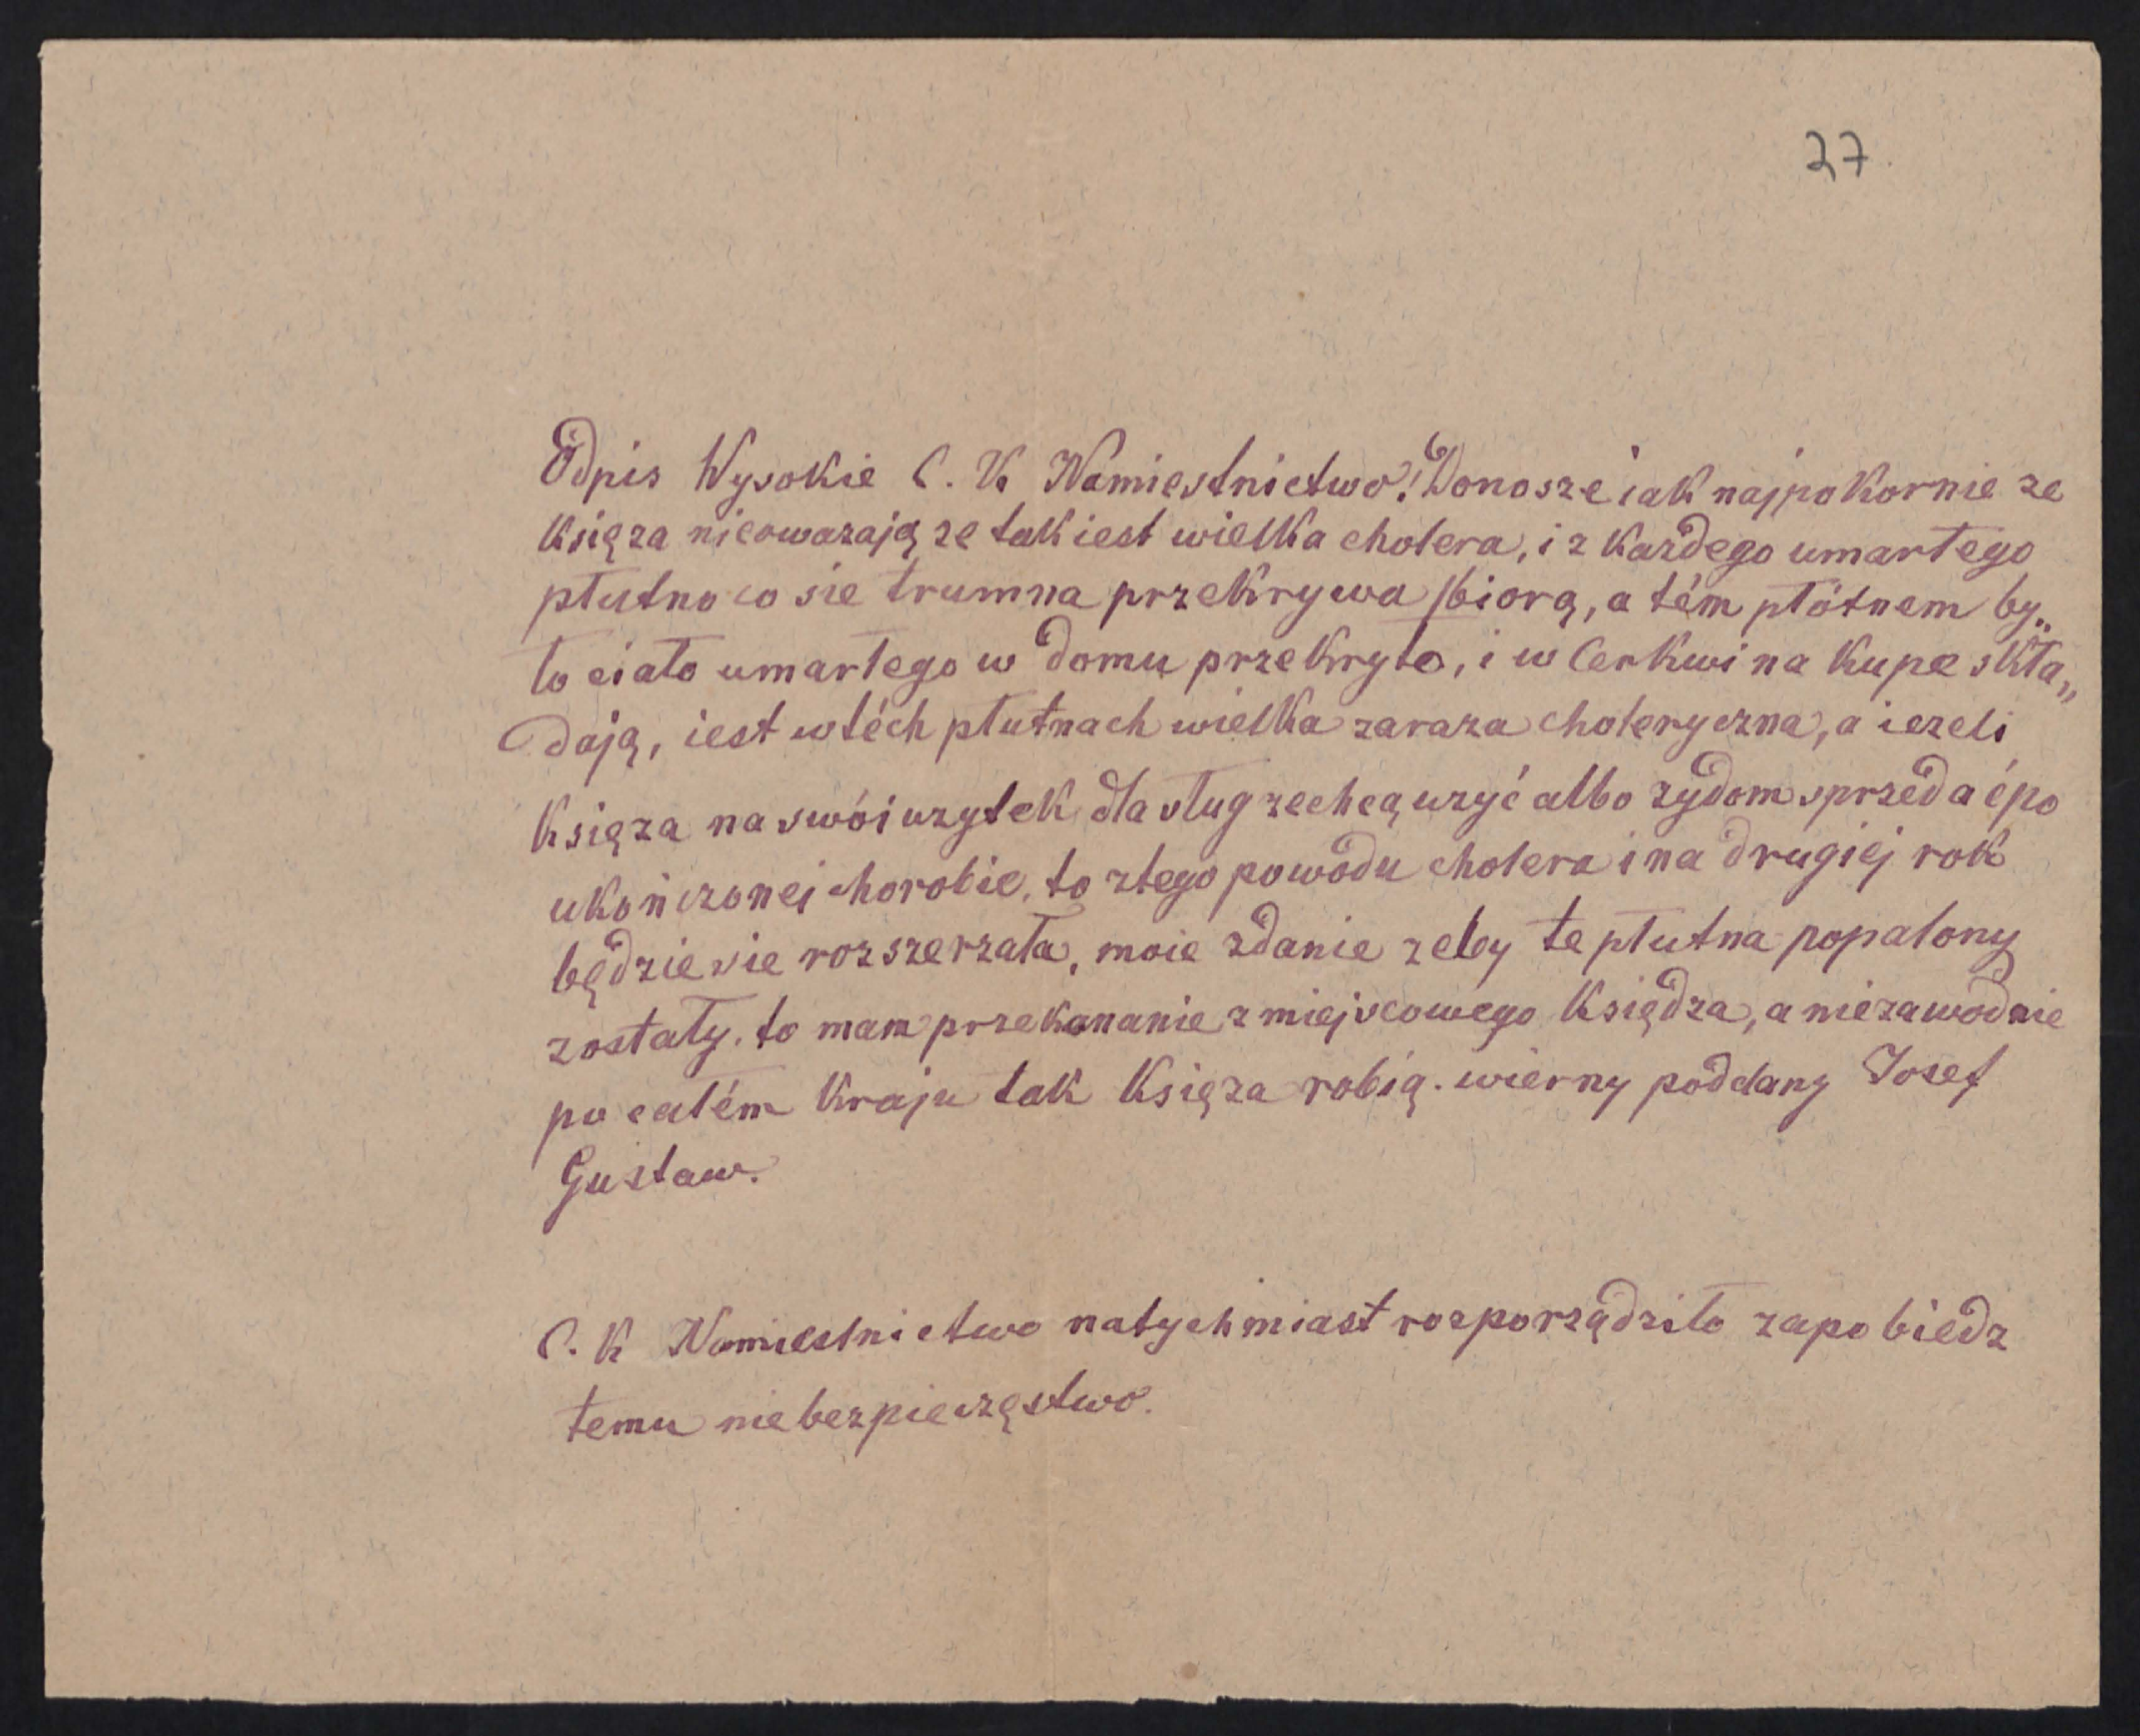 37
Odpis Wysokie C. K Namiestnictwo! Donosze iak najpokornie ze
Księza nieowazają ze tak iest wielka cholera, i z Kazdego umartego
płutno co sie trumna przekrywa biorą, a tém płótnem by„
ło ciało umarłego w domu przekryto, i w Cerkwi na Kupe skła„
dają, iest w téch płutnach wielka zaraza choleryczna, a iezeli
Księza na swói uzytek dla sług zechcą uzyć albo zydom sprzedać po
ukończonei chorobie, to ztego powodu cholera i na drugiej rok
będzie sie rozszerzała, moie zdanie zeby te płutna popalony
zostały. to mam przekonanie z miejscowego Księdza, a niezawodnie
po całém Kraju tak Księza robią. wierny poddany Josef
Gustaw.
C. K Namiestnictwo natychmiast rozporządziło zapobiedz
temu niebezpieczęstwo.